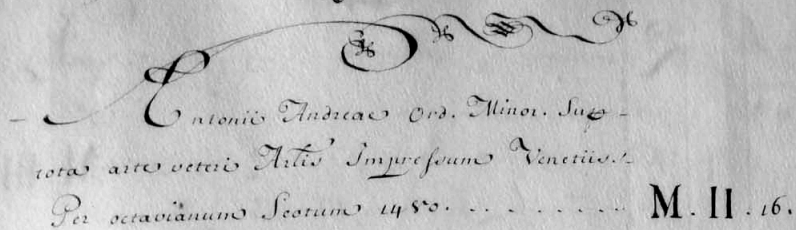 Antonii Andreae Ord. Minor. Sup-
tota arte veteri Artis Impressum Venetiis.
Per octavianum Scotum 1480. . . . . . . . . M. II. 16.